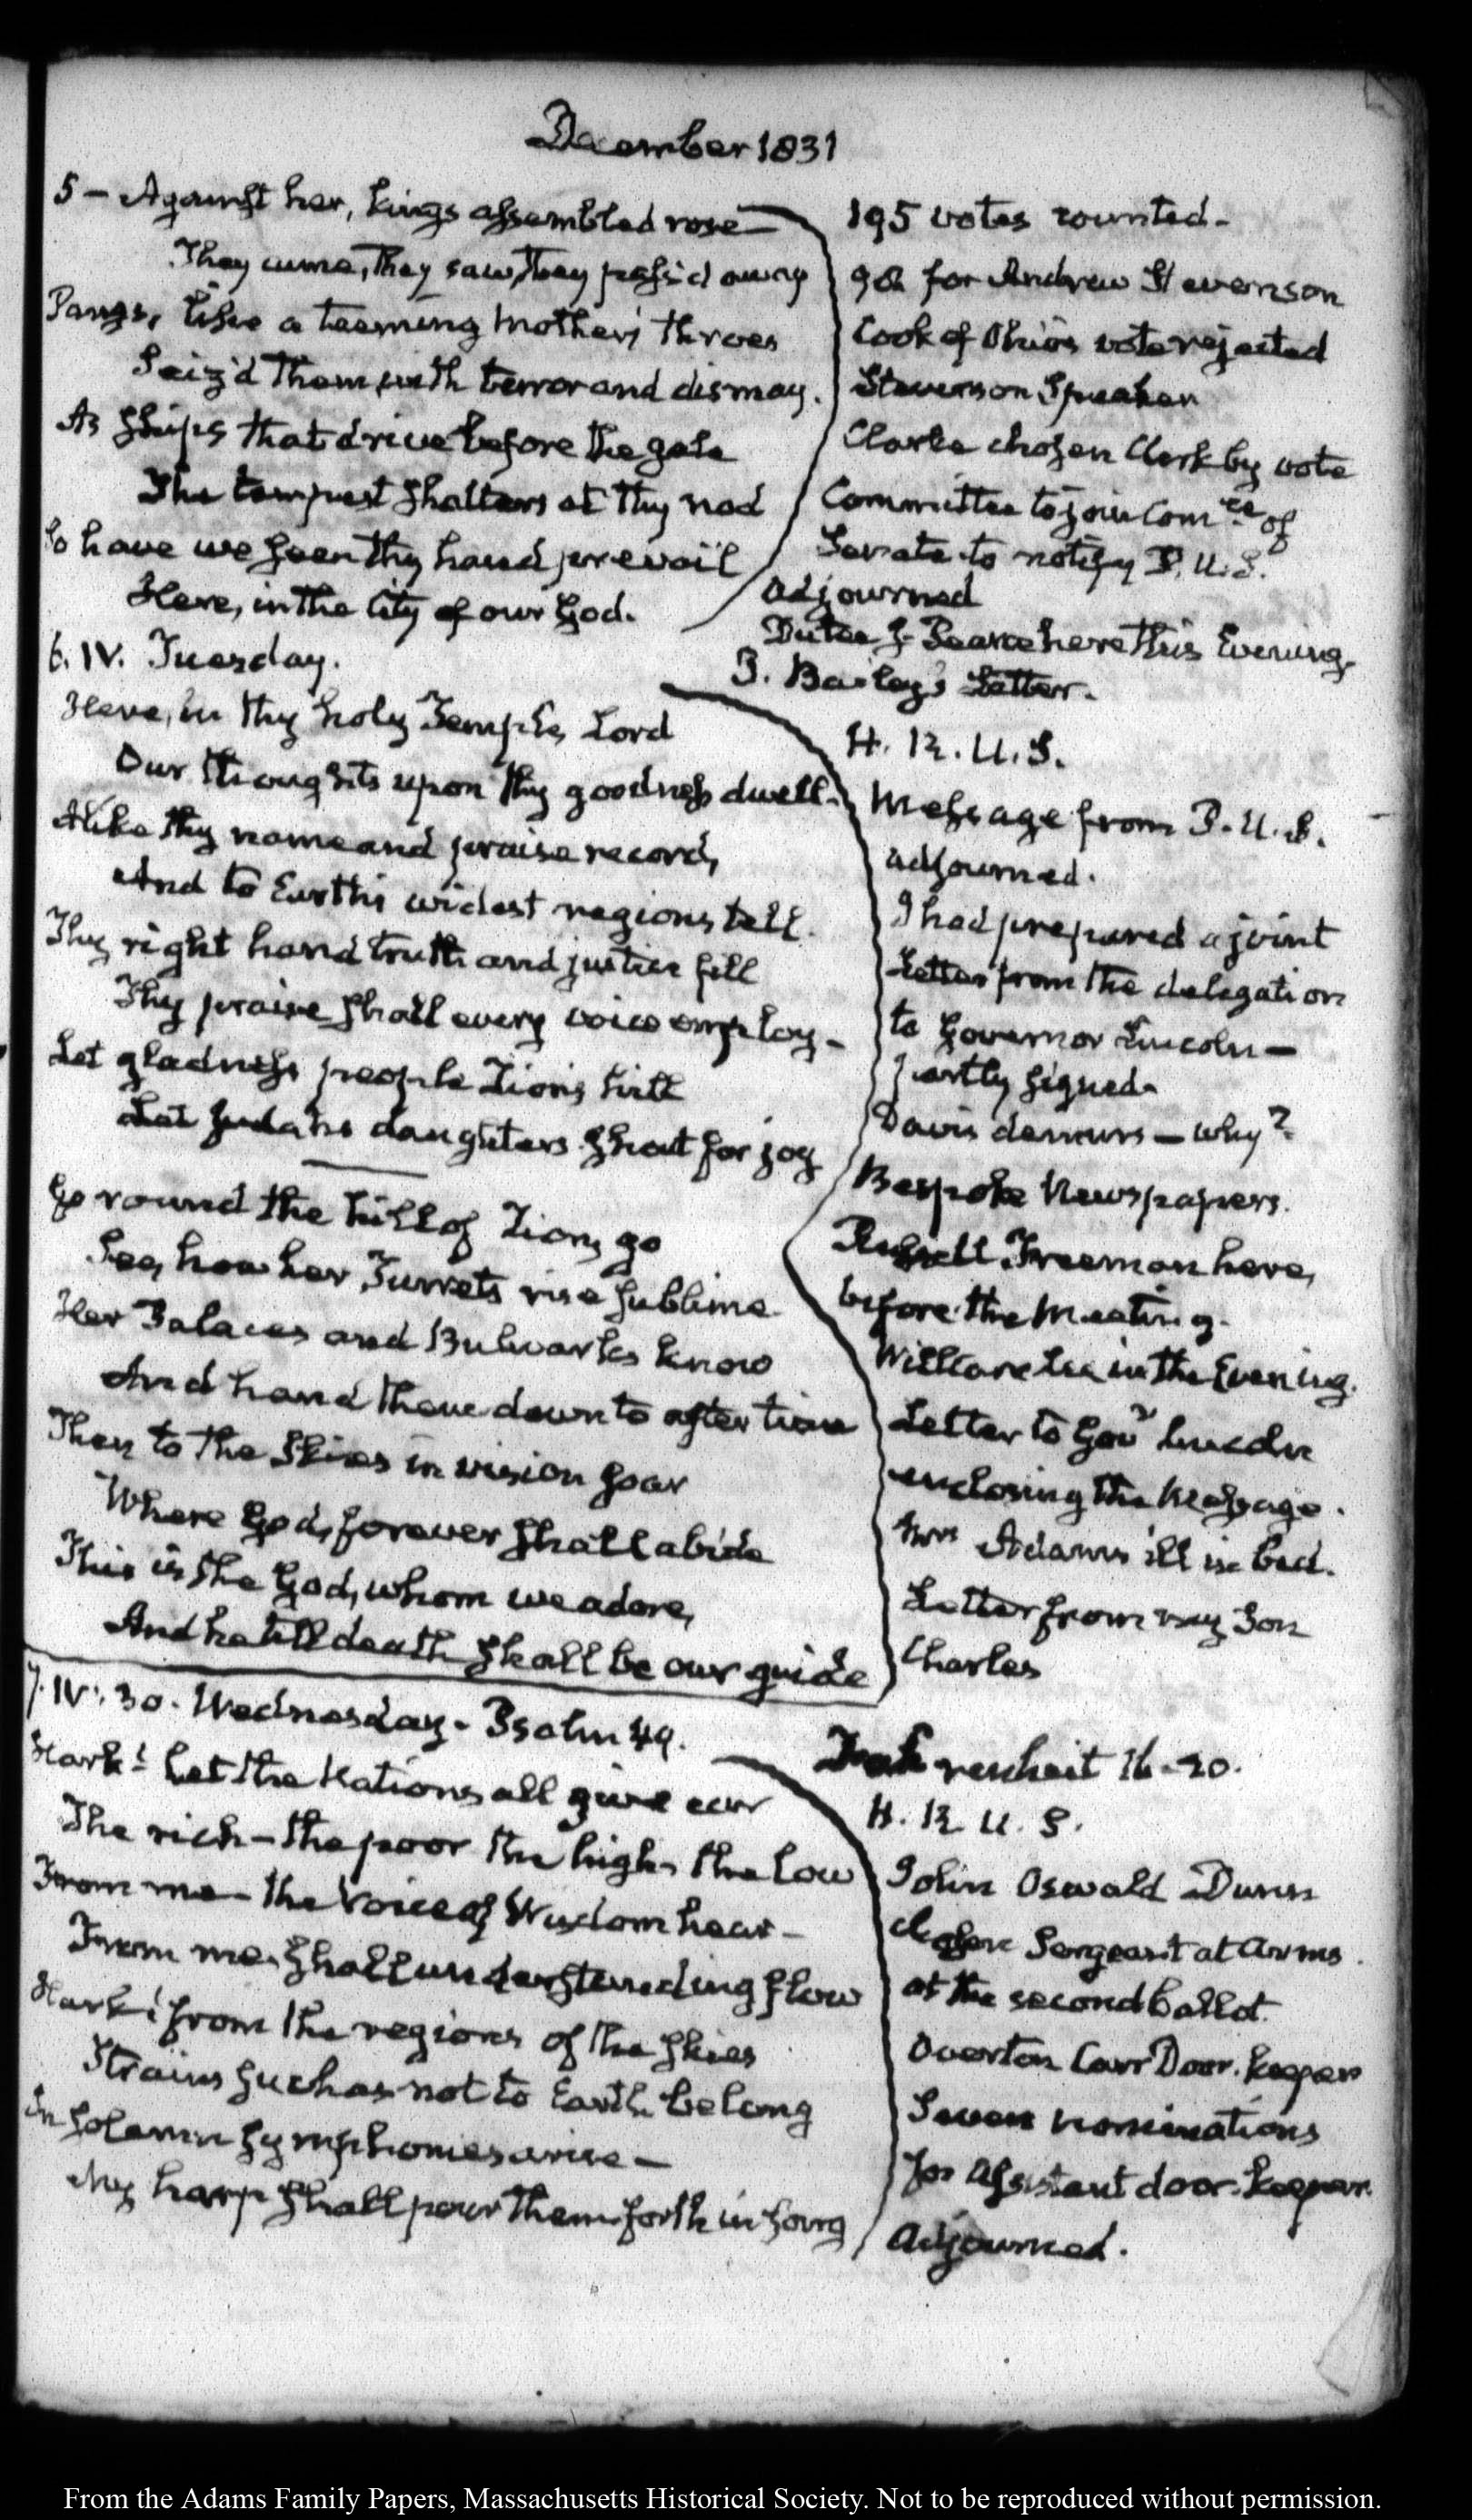 December 1831
5 - Against her, kings assembled rose
They came, they saw, they pass'd away
Pangs, like a teeming mother's throes
Seiz'd them, with terror and dismay.
As ships that drive before the gale
The tempest shatters at thy nod
So have we seen thy hand prevail
Here, in the City of our God.
195 votes counted -
98 for Andrew Stevenson
Cook of Ohio's vote rejected
Stevenson Speaker
Clarke chosen Clerk by vote
Committee to join Com.ee of
Senate to notify P. U. S.
Adjourned
Dutee J. Pearce here this Evening.
B. Bailey's Letter.
6. IV. Tuesday.
Here, in thy holy Temple, Lord
Our thoughts upon thy goodness dwell.
Alike thy name and praise record,
And to Earth's widest regions tell.
Thy right hand truth and justice fill
Thy praise shall every voice employ -
Let gladness people Zion's hill
Let Judah's daughters shout for joy
Go round the hill of Zion, go
See, how her Turrets rise sublime
Her Palaces and Bulwarks know
And hand them down to after time
Then to the Skies in vision soar
Where God, forever shall abide
This is the God, whom we adore,
And he till death shall be our guide
H. R. U. S.
Message from P. U. S.
adjourned.
I had prepared a joint
Letter from the delegation
to Governor Lincoln -
partly signed.
Davis demurs - why?
Bespoke Newspapers.
Russell Freeman here,
before the Meeting.
in the Evening.
Letter to Gov.r Lincoln
enclosing the Message.
Mrs Adams ill in bed.
Letter from my Son
Charles
7. IV: 30. Wednesday - Psalm 49.
Hark! let the Nations all give ear
The rich - the poor the high - the low
From me - the voice of Wisdom hear -
From me, shall understanding flow
Hark! from the regions of the skies
Strains such as not to Earth belong
In solemn symphonies arise -
My harp shall pour them forth in song
Fahrenheit 16-20.
H. R. U. S.
John Oswald Dunn
chosen Sergeant at Arms.
at the second ballot.
Overton Carr Door-keeper
Seven nominations
for Assistant door-keeper.
Adjourned.
From the Adams Family Papers, Massachusetts Historical Society. Not to be reproduced without permission.